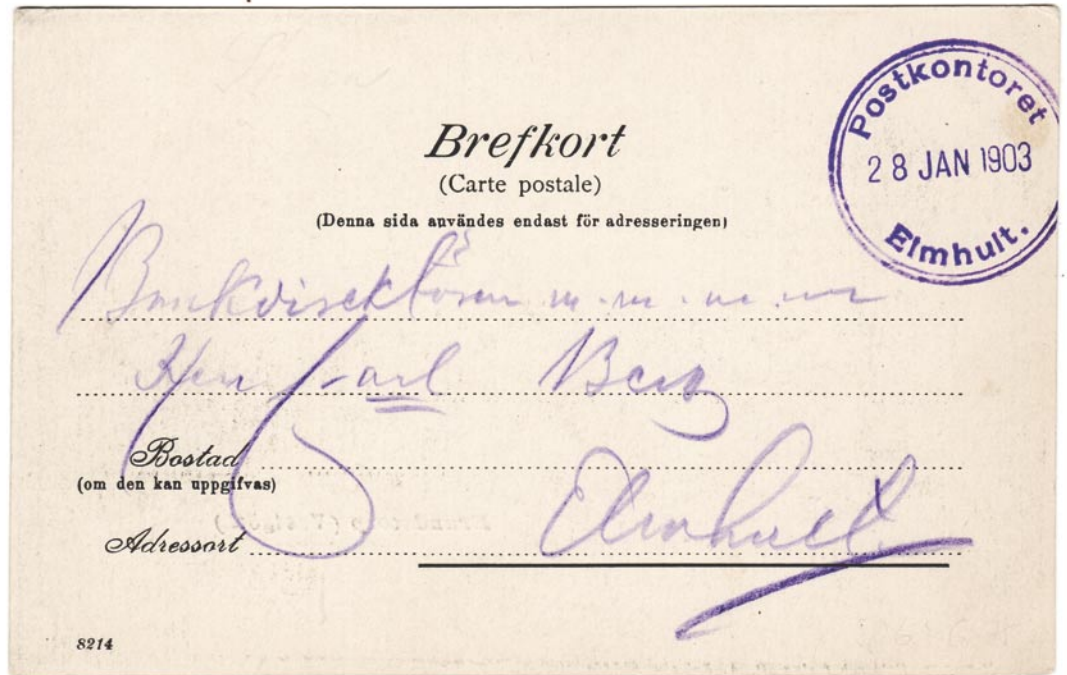 Postkontoret
28 JAN 1903
Elmhult.
Brefkort
(Carte postale)
(Denna sida användes endast för adresseringen)
Bankdirektören m.m.m.m
Herr Carl Berg
Bostad
(om den kan uppgifvas)
Elmhult.
Adressort
8214